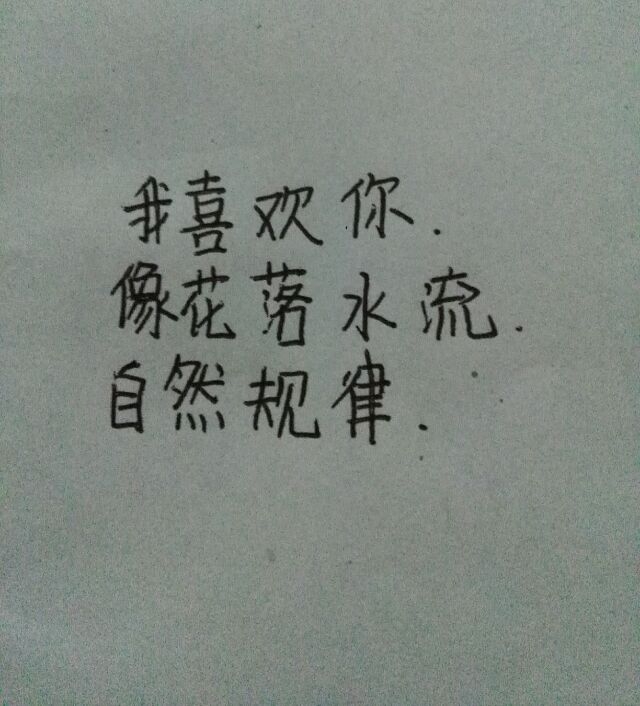 我喜欢你.
像花落水流.
自然规律.